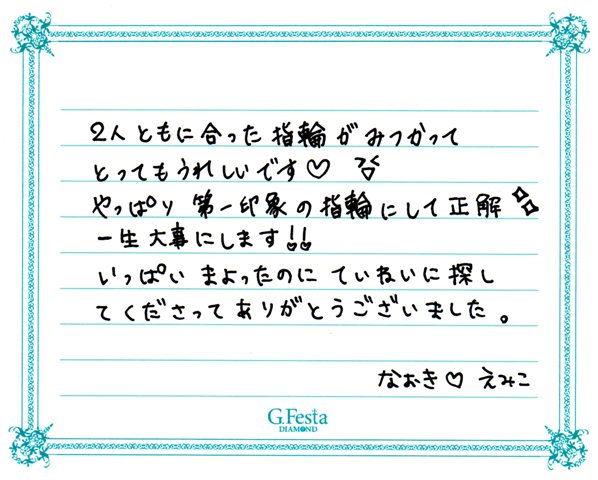 2人ともに合った指輪がみつかって
とってもうれしいです♡
やっぱり 第一印象の指輪にして正解
一生大事にします!!
いっぱい まよったのに ていねいに探し
てくださってありがとうございました。
なおき♡えみこ
G.Festa
DIAMOND